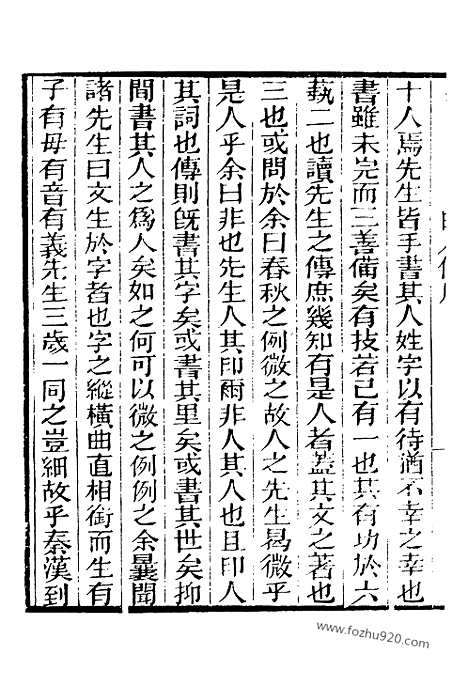 十人焉先生皆手書其人姓字以有待猶不幸之幸也
書雖未完而三善備矣有技若己有一也其有功於六
蓺二也讀先生之傳庶幾知有是人者蓋其文之著也
三也或問於余曰春秋之例微之故人之先生曷微乎
是人乎余曰非也先生人其印爾非人其人也且印人
其詞也傳則旣書其字矣或書其里矣或書其世矣抑
間書其人之爲人矣如之何可以微之例例之余曩聞
諸先生曰文生於字者也字之縱橫曲直相銜而生有
子有毋有音有義先生三歲一同之豈細故乎秦漢到
www.fozhu920.com